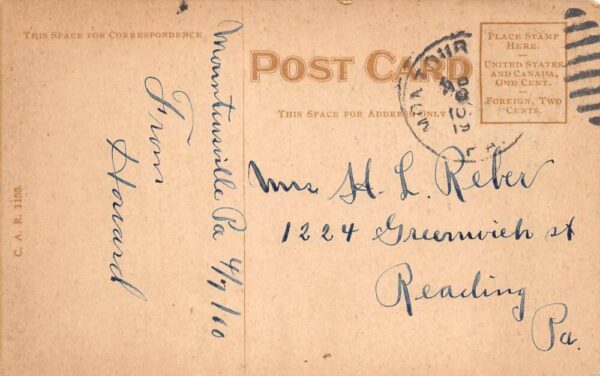 THIS SPACE FOR CORRESPONDENCE
POST CARD
THIS SPACE FOR ADDRESS ONLY
PLACE STAMP
HERE.
UNITED STATES
AND CANADA,
ONE CENT.
FOREIGN, TWO
CENTS.
Mountensville Pa 4/7/10
From
Howard
Mrs H. L. Reber
1224 Greenwich st
Reading
Pa.
C. A. R. 1155.